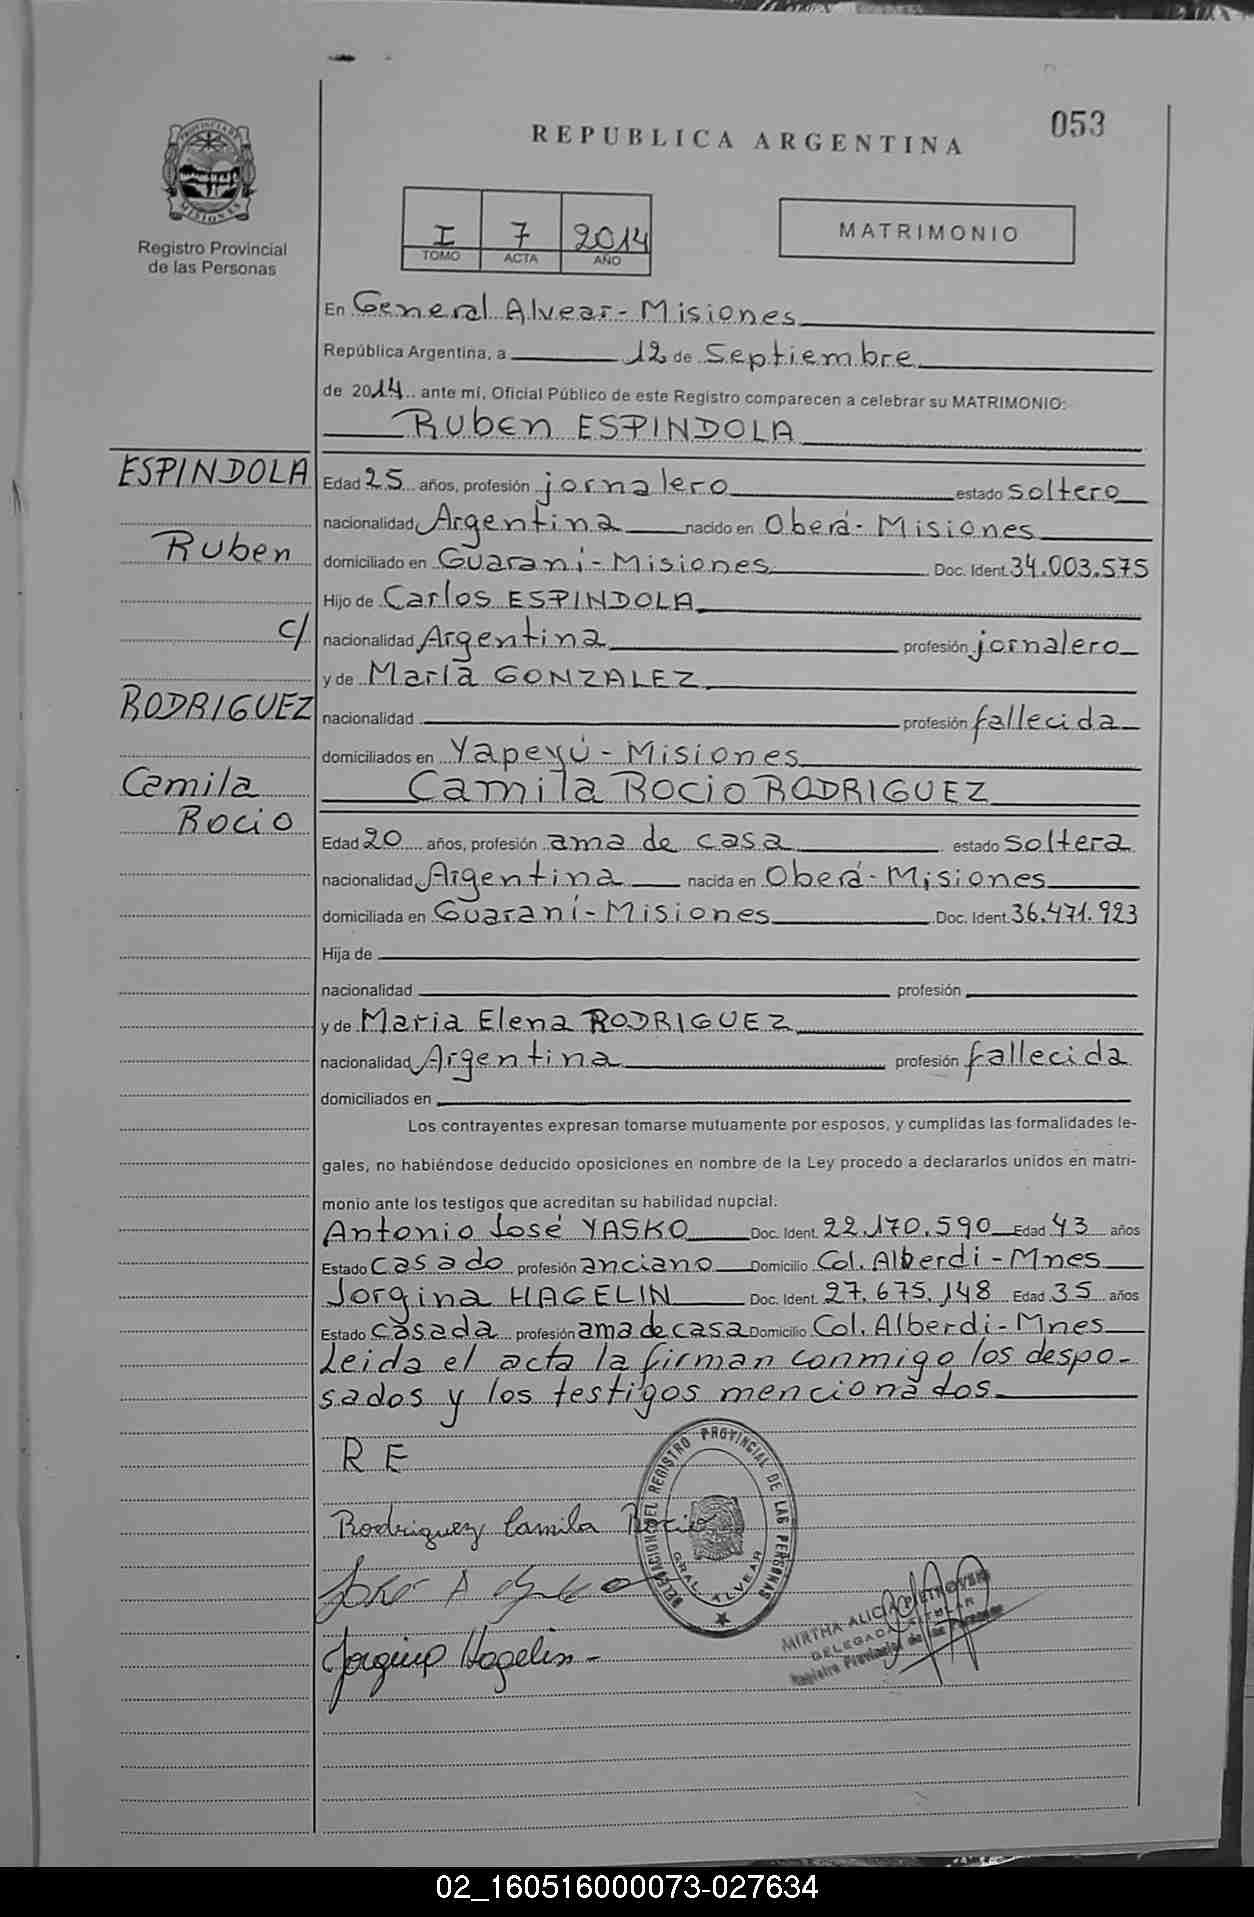 053
REPUBLICA ARGENTINA
PROVINCIA DE MISIONES
Registro Provincial
de las Personas
I 7 2014
TOMO ACTA AÑO
MATRIMONIO
En General Alvear - Misiones
República Argentina, a 12 de Septiembre
de 2014 ante mí, Oficial Público de este Registro comparecen a celebrar su MATRIMONIO:
Ruben ESPINDOLA
ESPINDOLA
Ruben
c/
RODRIGUEZ
Camila
Rocio
Edad 25 años, profesión jornalero estado soltero
nacionalidad Argentina nacido en Oberá - Misiones
domiciliado en Guaraní - Misiones Doc. Ident. 34.003.575
Hijo de Carlos ESPINDOLA
nacionalidad Argentina profesión jornalero
y de María GONZALEZ
nacionalidad profesión fallecida
domiciliados en Yapeyú - Misiones
Camila Rocio RODRIGUEZ
Edad 20 años, profesión ama de casa estado soltera
nacionalidad Argentina nacida en Oberá - Misiones
domiciliada en Guaraní - Misiones Doc. Ident. 36.471.923
Hija de
nacionalidad profesión
y de Maria Elena RODRIGUEZ
nacionalidad Argentina profesión fallecida
domiciliados en
Los contrayentes expresan tomarse mutuamente por esposos, y cumplidas las formalidades le-
gales, no habiéndose deducido oposiciones en nombre de la Ley procedo a declararlos unidos en matri-
monio ante los testigos que acreditan su habilidad nupcial.
Antonio José YASKO Doc. Ident. 22.170.590 Edad 43 años
Estado casado profesión anciano Domicilio Col. Alberdi - Mnes
Jorgina HAGELIN Doc. Ident. 27.675.148 Edad 35 años
Estado casada profesión ama de casa Domicilio Col. Alberdi - Mnes
Leida el acta la firman conmigo los despo-
sados y los testigos mencionados
R E
Rodriguez Camila Rocio
DELEGACION DEL REGISTRO PROVINCIAL DE LAS PERSONAS
GRAL. ALVEAR
MIRTHA ALICIA
DELEGADA
Registro Provincial de las Personas
Jorgina Hagelin -
02_160516000073-027634